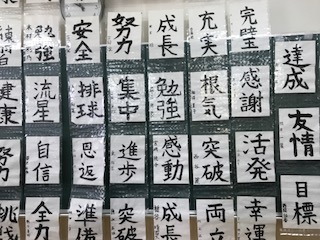 達成
友情
目標
完璧
感謝
活発
幸運
充実
根気
突破
両立
成長
勉強
感動
成長
努力
集中
進歩
突破
安全
排球
恩返
準備
勉強
流星
自信
全力
練習
健康
努力
挑戦